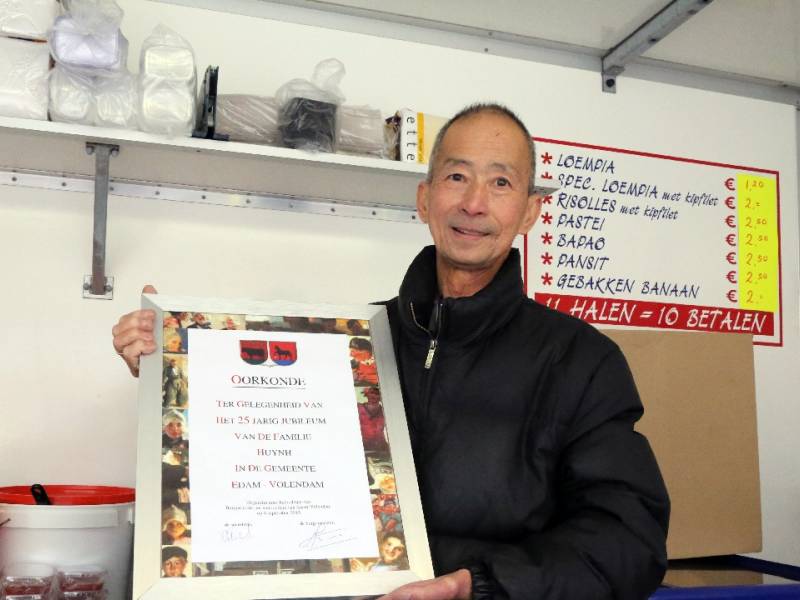 ette
* LOEMPIA € 1,20
* SPEC. LOEMPIA met kipfilet € 2,=
* RISOLLES met kipfilet € 2,50
* PASTEI € 2,50
* BAPAO € 2,50
* PANSIT € 2,50
* GEBAKKEN BANAAN € 2,=
11 HALEN = 10 BETALEN
OORKONDE
TER GELEGENHEID VAN
HET 25 JARIG JUBILEUM
VAN DE FAMILIE
HUYNH
IN DE GEMEENTE
EDAM - VOLENDAM